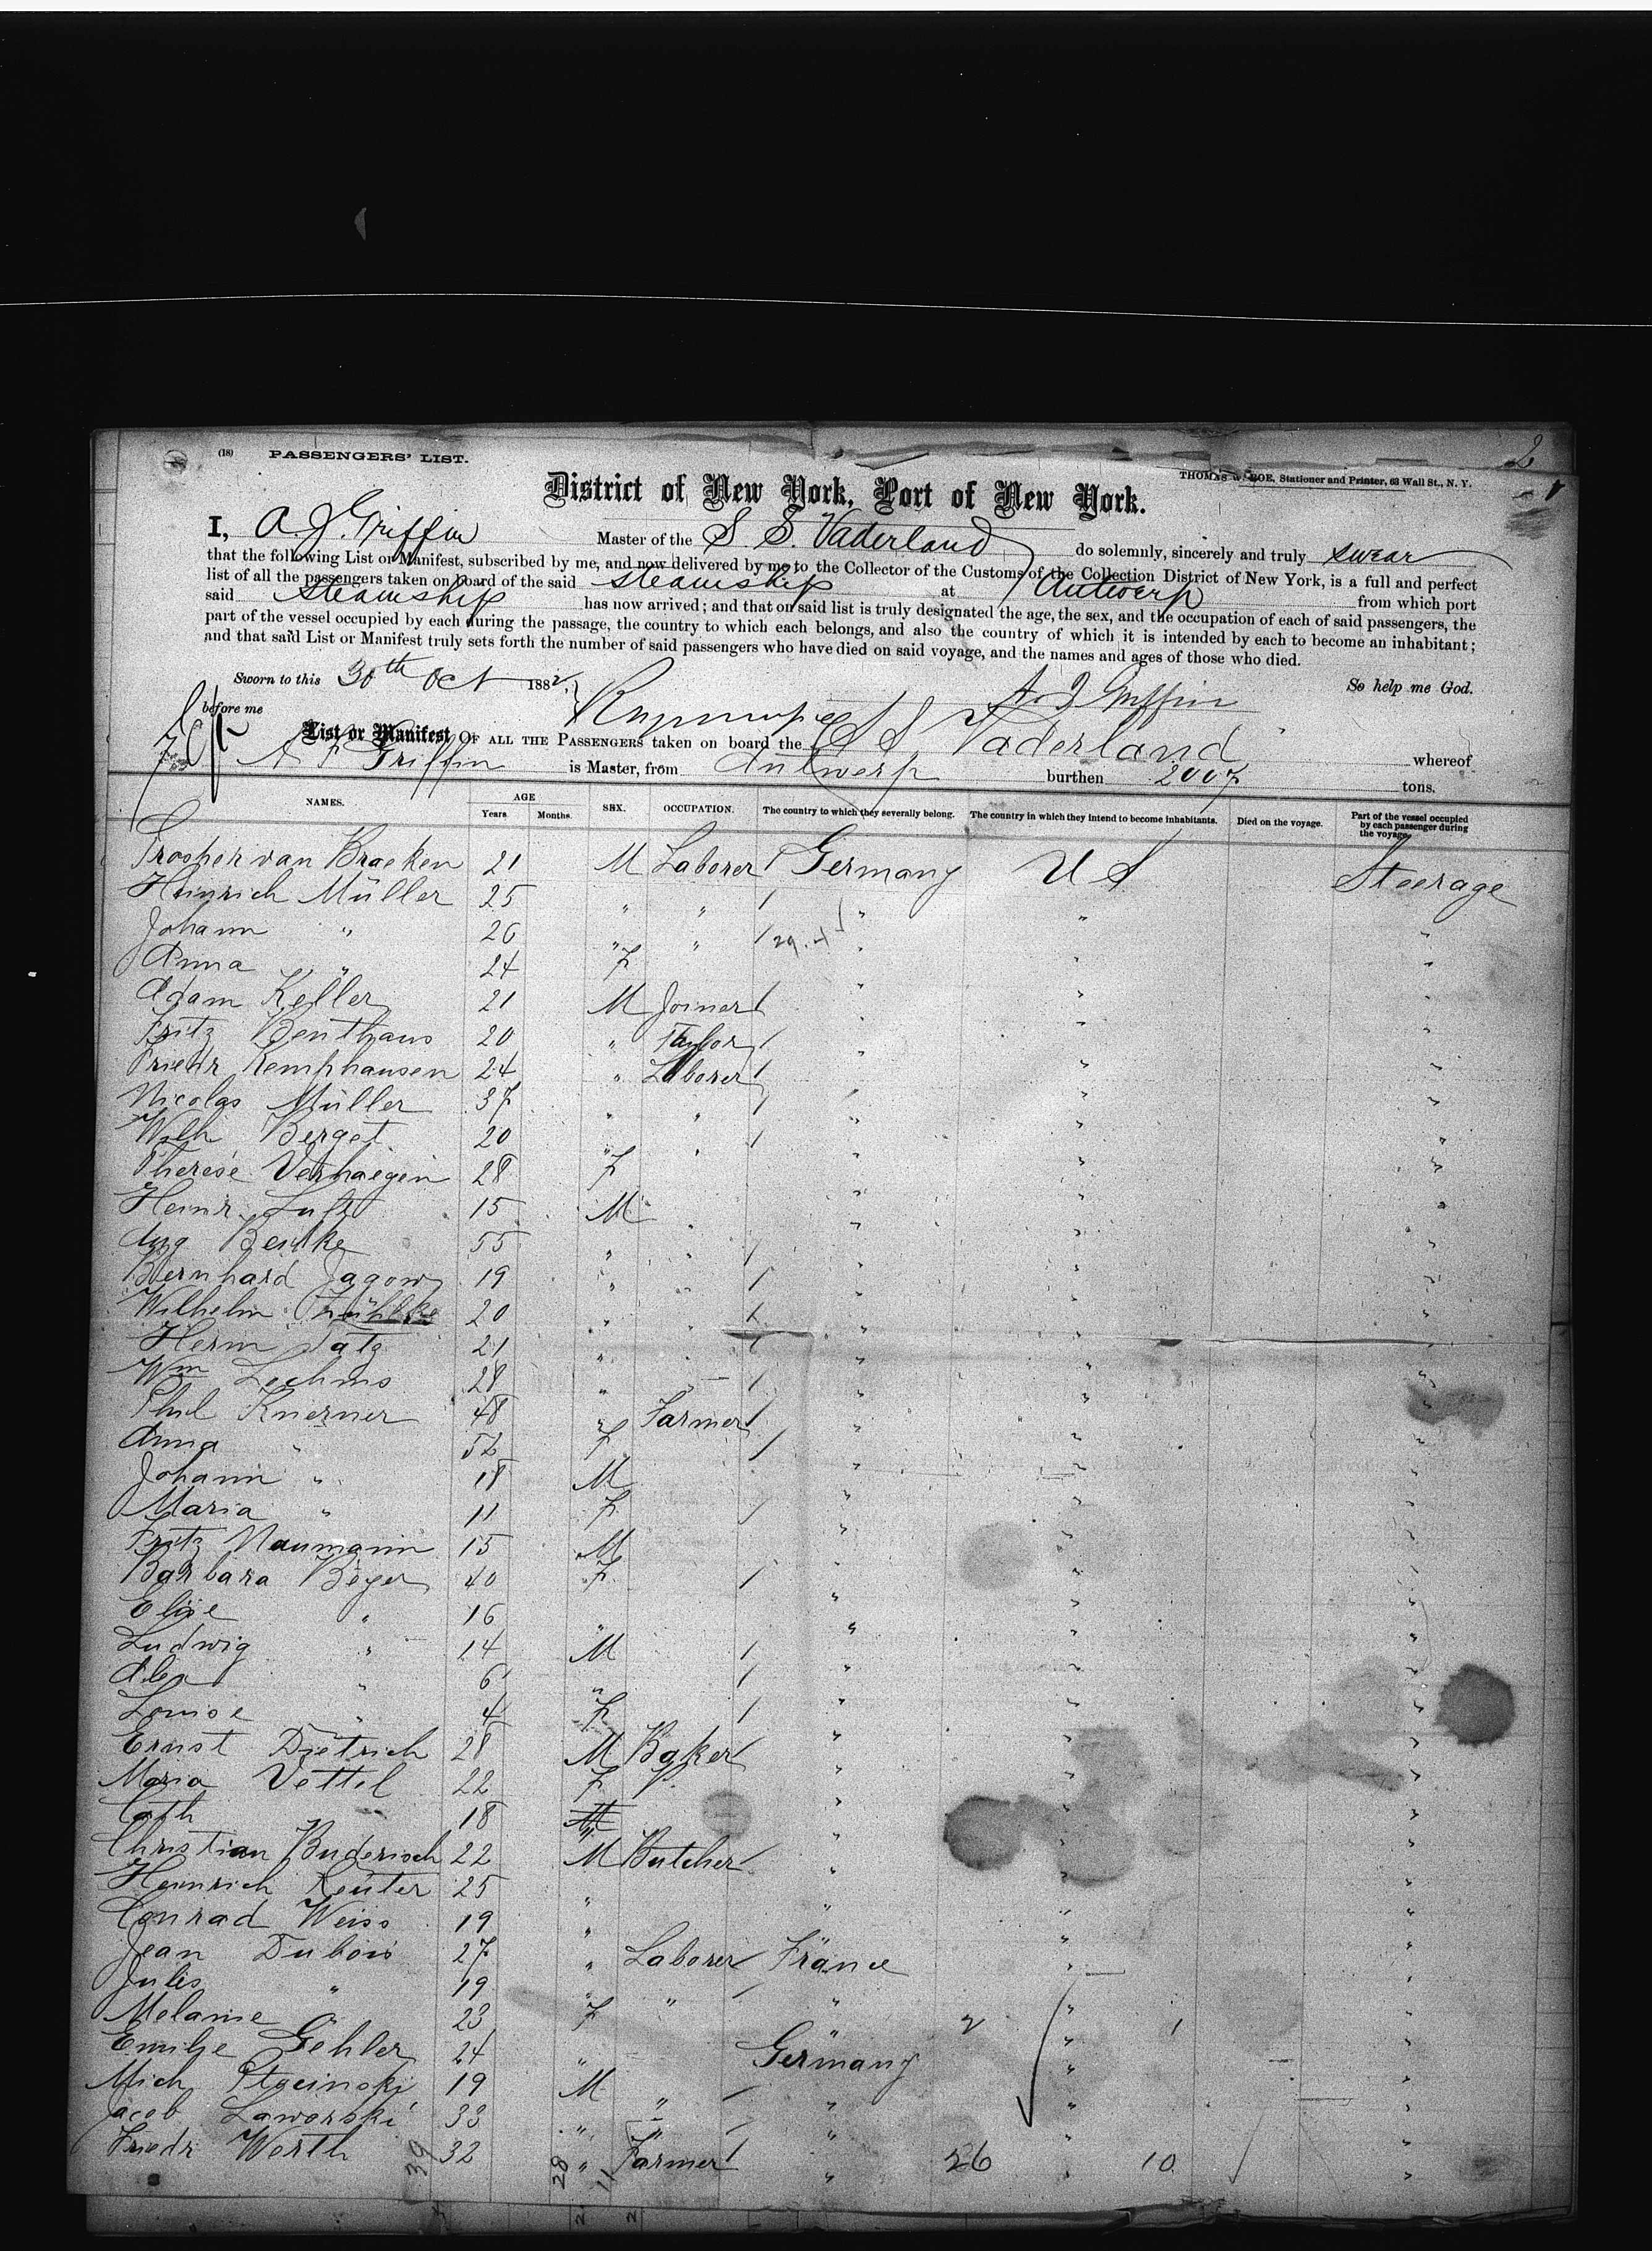 2
(18) PASSENGERS' LIST.
THOMAS W. BOE, Stationer and Printer, 63 Wall St., N. Y.
District of New York, Port of New York.
I, A. J. Griffin Master of the S. S. Vaderland do solemnly, sincerely and truly swear
that the following List or Manifest, subscribed by me, and now delivered by me to the Collector of the Customs of the Collection District of New York, is a full and perfect
list of all the passengers taken on board of the said steamship at Antwerp from which port
said Steamship has now arrived; and that on said list is truly designated the age, the sex, and the occupation of each of said passengers, the
part of the vessel occupied by each during the passage, the country to which each belongs, and also the country of which it is intended by each to become an inhabitant;
and that said List or Manifest truly sets forth the number of said passengers who have died on said voyage, and the names and ages of those who died.
Sworn to this 30th Oct 1882, So help me God.
before me A J Griffin
List or Manifest OF ALL THE PASSENGERS taken on board the S S Vaderland whereof
A J Griffin is Master, from Antwerp burthen 2007 tons.
NAMES. AGE Years Months. SEX. OCCUPATION. The country to which they severally belong. The country in which they intend to become inhabitants. Died on the voyage. Part of the vessel occupied by each passenger during the voyage.
Prosper van Bracken 21 M Laborer / Germany U S Steerage
Heinrich Müller 25 " " / " " "
Johann " 26 " " / 29. " " "
Anna " 24 F " " "
Adam Keller 21 M Joiner / " " "
Fritz Benthaus 20 " Taylor / " " "
Friedr Kemphausen 24 " Laborer / " " "
Nicolas Müller 37 " " / " " "
Wilh Berget 20 " " / " " "
Therese Verhaegen 28 F " " "
Heinr. Luft 15 M " " " "
Aug Benike 55 " " / " " "
Bernhard Jagow 19 " " / " " "
Wilhelm 20 " " / " " "
Herm Tatz 21 " " / " " "
Wm Lechms 28 " / " " "
Phil Knerner 48 " Farmer / " " "
Anna " 52 F / " " "
Johann " 18 M " " "
Maria " 11 F / " " "
Fritz Naumann 15 M " " "
Barbara Beyer 40 F / " " "
Elise " 16 " " " "
Ludwig " 14 M / " " "
Alex " 6 " / " " "
Louise " 4 F / " " "
Ernst Dietrich 28 M Baker / " " "
Maria Vettel 22 F " " "
Cath " 18 " " " "
Christian Buderisch 22 M Butcher / " " "
Heinrich Reuter 25 " " " "
Conrad Weiss 19 " " " "
Jean Dubois 27 " Laborer / France " "
Jules " 19 " " / " " "
Melanie " 23 F " 2 " 1 "
Emilje Gehler 24 " Germany " "
Mich Stacinski 19 M " / " " "
Jacob Laworski 33 " " / " " "
Friedr Werth 32 " Farmer / " 26 " 10 "
39 28 11
2 2